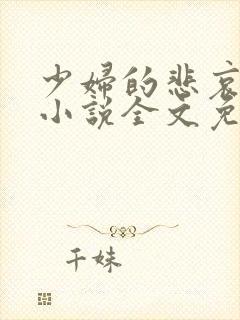 少婦的悲哀
小說全文免
千妹